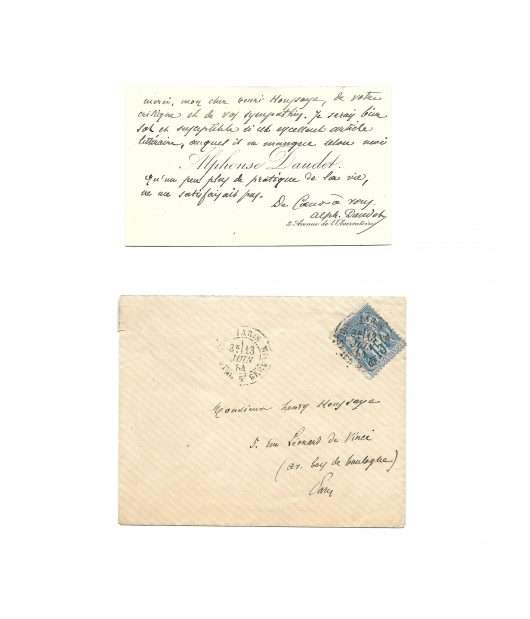 merci, mon cher henri Houssaye, de votre
critique et de vos sympathies. Je serais bien
sot et susceptible si cet excellent article
littéraire, auquel il ne manque selon moi
Alphonse Daudet
qu'un peu plus de pratique de la vie,
ne me satisfaisait pas.
De Cœur à vous
Alph. Daudet
3, Avenue de l'Observatoire
PARIS
3E 13
JUIN
84
PARIS
15
Monsieur henry Houssaye
5. rue Léonard de Vinci
(av. bois de boulogne)
Paris